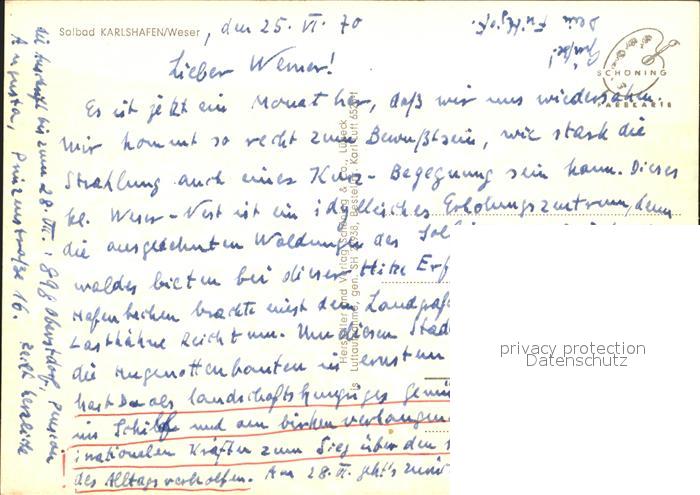 Solbad KARLSHAFEN/Weser, den 25. VI. 70
Lieber Werner!
Es ist jetzt ein Monat her, daß wir uns wiedersahen.
Mir kommt so recht zum Bewußtsein, wie stark die
Strahlung auch einer Kurz-Begegnung sein kann. Dieses
kl. Weser-Nest ist ein idyllisches Erholungszentrum, denn
die ausgedehnten Waldungen des Sol
waldes bieten bei dieser Hitze Erf
Hafenbecken brachte einst dem Landgraf
Lastkähne Reichtum. Um diesen Stad
die Hugenottenbauten in ernstem
hast Du als landschaftshungriges Gemü
ins Schilf und am birkenverhangen
irrationalen Kräften zum Sieg über den
des Alltags verholfen. Am 28. VI. geht's zurü
die Anschrift bis zum 28. VII.: 898 Oberstdorf, Pension
Augusta, Prinzenstraße 16. Recht herzliche
Grüße!
Dein
SCHÖNING
FARBKARTE
Hersteller und Verlag Schöning & Co., Lübeck
Luftaufnahme, gen. SH 2/938, Bestell-Nr. Karl Luft
privacy protection
Datenschutz